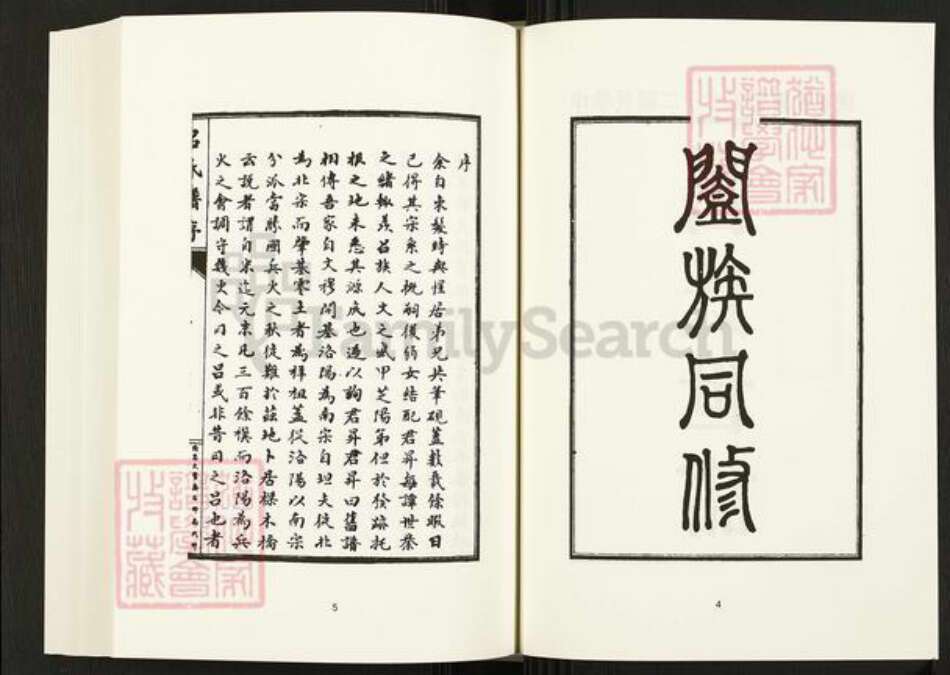 闔族同修
4
序
余自束髮時與惺居弟兄共筆硯蓋數載餘暇日
已得其宗系之概嗣後弱女結配君昇每譚世系
之緒輒羨呂族人文之盛甲芝陽第但於發跡托
根之地未悉其源流也過以詢君昇君昇曰舊譜
相傳吾家自文穆開基洛陽為南宗自坦夫徙北
為北宗而肇基寒土者為祥祖蓋從洛陽以南宗
分派當勝國兵火之秋徙難於茲地卜居樑木橋
云說者謂自宋迄元末凡三百餘禩而洛陽為兵
火之會調守幾更今日之呂或非昔日之呂也者
呂氏譜序
5
FamilySearch